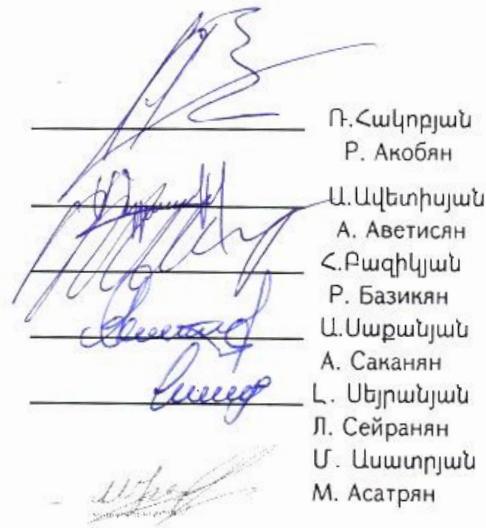 Ռ.Հակոբյան
Р. Акобян
Ա.Ավետիսյան
А. Аветисян
Հ.Բազիկյան
Р. Базикян
Ա.Սաքանյան
А. Саканян
Լ. Սեյրանյան
Л. Сейранян
Մ. Ասատրյան
М. Асатрян